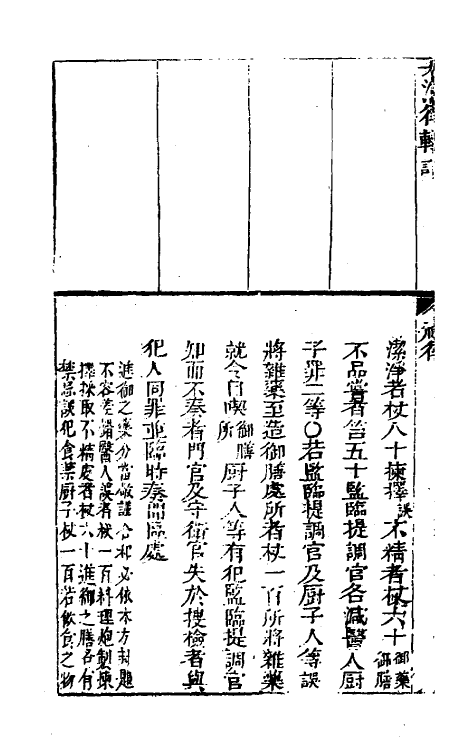 大清律輯註
禮律
潔淨者杖八十揀擇誤不精者杖六十御藥御膳
不品嘗者笞五十監臨提調官各減醫人厨
子罪二等○若監臨提調官及厨子人等誤
將雜藥至造御膳處所者杖一百所將雜藥
就令自喫御膳所厨子人等有犯監臨提調官
知而不奏者門官及守衛官失於搜檢者與
犯人同罪並臨時奏聞區處
進御之藥分當敬謹合和必依本方封題
不容差錯醫人誤者杖一百料理炮製揀
擇採取不精處者杖六十進御之膳各有
禁忌誤犯食禁厨子杖一百若飲食之物